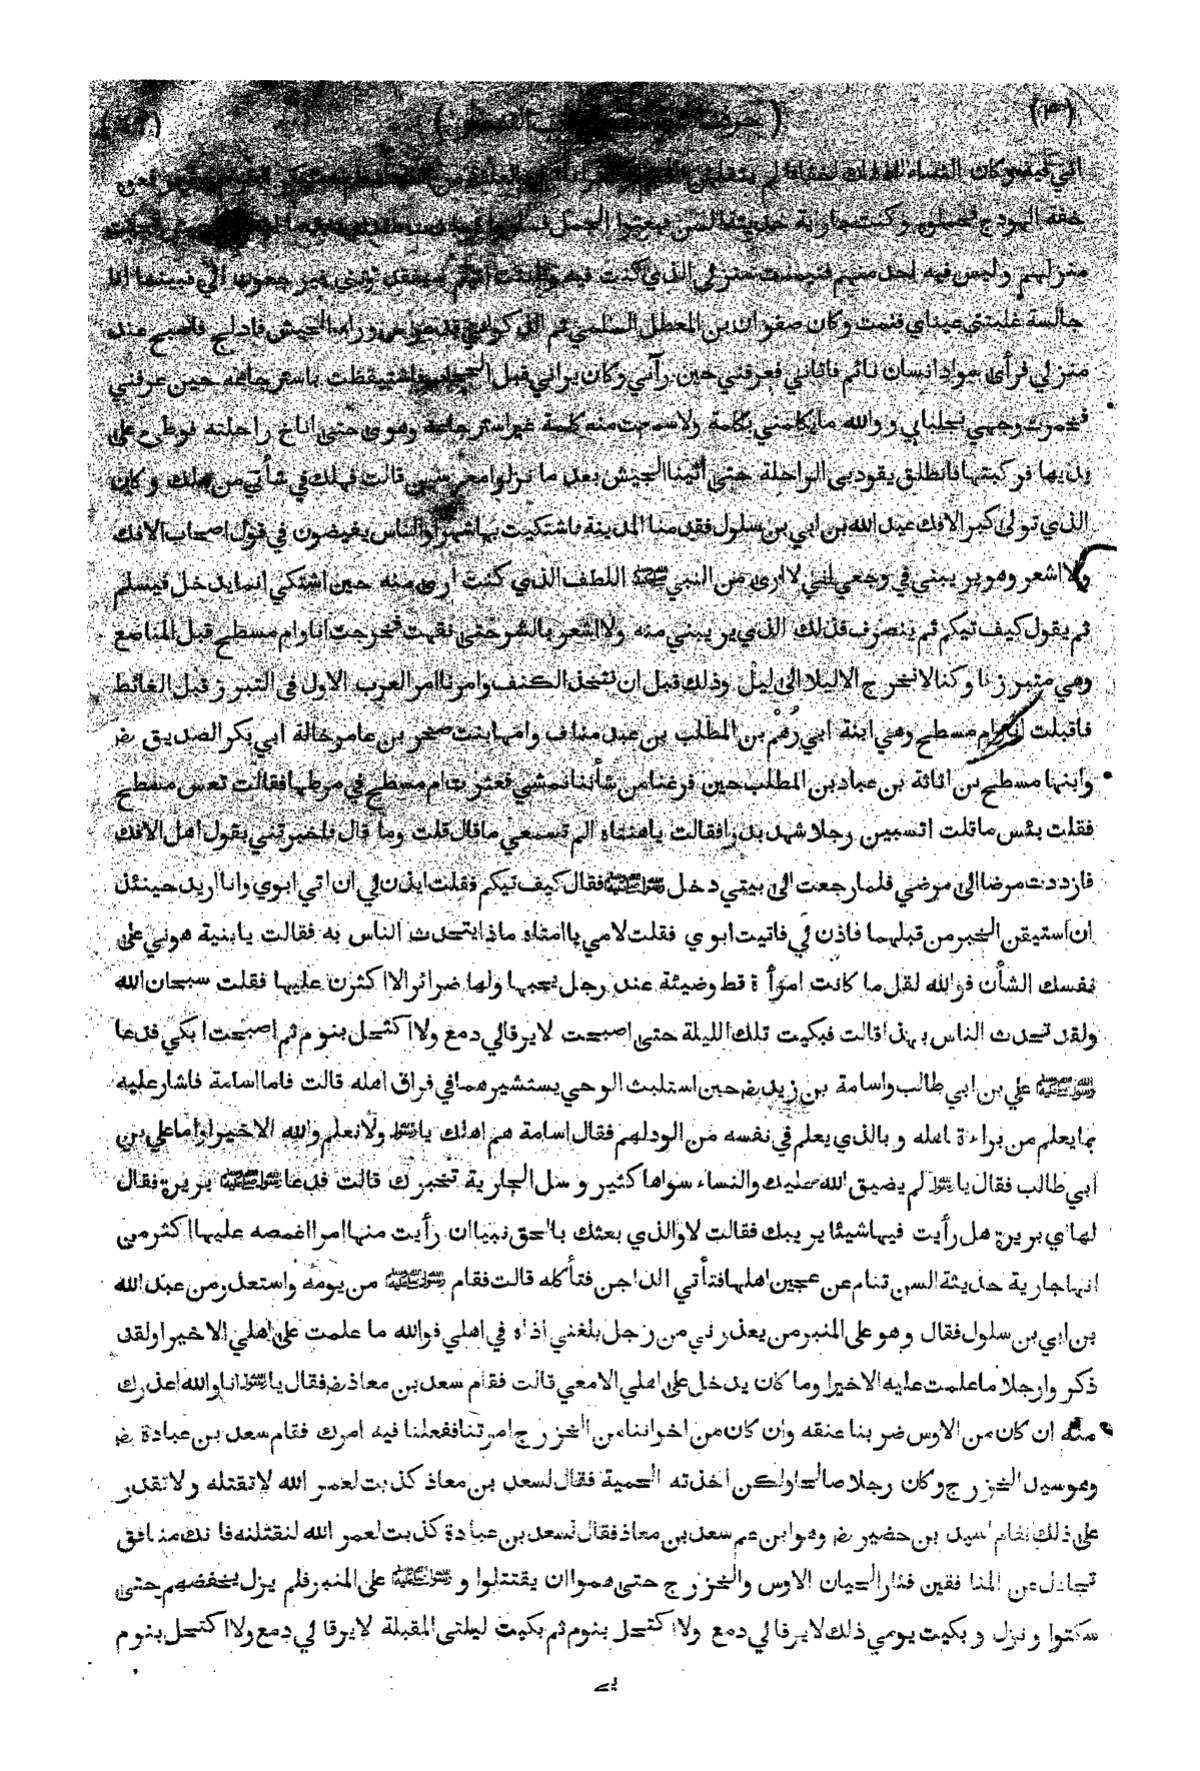 خفة الهودج وكنت جارية حديثة السن فبعثوا الجمل
منزلهم وليس فيه احد منهم فتيممت منزلي الذي كنت فيه وظننت فبينما انا
جالسة غلبتني عيناي فنمت وكان صفوان بن المعطل السلمي ثم الذكواني وراء الجيش فادلج فاصبح عند
منزلي فرأى سواد انسان نائم فاتاني فعرفني حين رآني وكان يراني قبل الحجاب فاستيقظت باسترجاعه حين عرفني
فخمرت وجهي بجلبابي ووالله ما يكلمني بكلمة ولاسمعت منه كلمة غير استرجاعه وهوى حتى اناخ راحلته فوطئ على
يديها فركبتها فانطلق يقود بي الراحلة حتى أتينا الجيش بعد ما نزلوا قالت فهلك في شأني من هلك وكان
الذي تولى كبر الافك عبد الله بن ابي بن سلول فقدمنا المدينة فاشتكيت بها شهرا والناس يفيضون في قول اصحاب الافك
ولااشعر وهو يريبني في وجعي اني لاارى من النبي ﷺ اللطف الذي كنت ارى منه حين اشتكي انما يدخل فيسلم
ثم يقول كيف تيكم ثم ينصرف فذلك الذي يريبني منه ولااشعر بالشر حتى نقهت فخرجت انا وام مسطح قبل المناصع
وهي متبرزنا وكنا لانخرج الا ليلا الى ليل وذلك قبل ان نتخذ الكنف وامرنا امر العرب الاول في التبرز قبل الغائط
فاقبلت انا وام مسطح وهي ابنة ابي رُهْم بن المطلب بن عبد مناف وامها بنت صخر بن عامر خالة ابي بكر الصديق رض
وابنها مسطح بن اثاثة بن عباد بن المطلب حين فرغنا من شأننا نمشي فعثرت ام مسطح في مرطها فقالت تعس مسطح
فقلت بئس ماقلت اتسبين رجلا شهد بدرا فقالت ياهنتاه الم تسمعي ماقال قلت وما قال فاخبرتني بقول اهل الافك
فازددت مرضا الى مرضي فلما رجعت الى بيتي دخل رسول الله ﷺ فقال كيف تيكم فقلت ايذن لي ان اتي ابوي وانا اريد حينئذ
ان استيقن الخبر من قبلهما فاذن لي فاتيت ابوي فقلت لامي ياامتاه ماذا يتحدث الناس به فقالت يابنية هوني على
نفسك الشأن فوالله لقل ما كانت امرأة قط وضيئة عند رجل يحبها ولها ضرائر الا اكثرن عليها فقلت سبحان الله
ولقد تحدث الناس بهذا قالت فبكيت تلك الليلة حتى اصبحت لايرقا لي دمع ولا اكتحل بنوم ثم اصبحت ابكي فدعا
رسول الله ﷺ علي بن ابي طالب واسامة بن زيد رض حين استلبث الوحي يستشيرهما في فراق اهله قالت فاما اسامة فاشار عليه
بما يعلم من براءة اهله وبالذي يعلم في نفسه من الود لهم فقال اسامة هم اهلك يا رسول الله ولا نعلم والله الا خيرا واما علي بن
ابي طالب فقال يا رسول الله لم يضيق الله عليك والنساء سواها كثير وسل الجارية تخبرك قالت فدعا رسول الله ﷺ بريرة فقال
لها اي بريرة هل رأيت فيها شيئا يريبك فقالت لا والذي بعثك بالحق نبيا ان رأيت منها امرا اغمصه عليها اكثر من
انها جارية حديثة السن تنام عن عجين اهلها فتأتي الداجن فتأكله قالت فقام رسول الله ﷺ من يومه واستعذر من عبد الله
بن ابي بن سلول فقال وهو على المنبر من يعذرني من رجل بلغني اذاه في اهلي فوالله ما علمت على اهلي الا خيرا ولقد
ذكروا رجلا ما علمت عليه الا خيرا وما كان يدخل على اهلي الا معي قالت فقام سعد بن معاذ رض فقال يا رسول الله انا والله اعذرك
منه ان كان من الاوس ضربنا عنقه وان كان من اخواننا من الخزرج امرتنا ففعلنا فيه امرك فقام سعد بن عبادة رض
وهو سيد الخزرج وكان رجلا صالحا ولكن اخذته الحمية فقال لسعد بن معاذ كذبت لعمر الله لاتقتله ولا تقدر
على ذلك فقام اسيد بن حضير رض وهو ابن عم سعد بن معاذ فقال لسعد بن عبادة كذبت لعمر الله لنقتلنه فانك منافق
تجادل عن المنافقين فثار الحيان الاوس والخزرج حتى هموا ان يقتتلوا و رسول الله ﷺ على المنبر فلم يزل يخفضهم حتى
سكتوا ونزل وبكيت يومي ذلك لايرقا لي دمع ولا اكتحل بنوم ثم بكيت ليلتي المقبلة لايرقا لي دمع ولا اكتحل بنوم